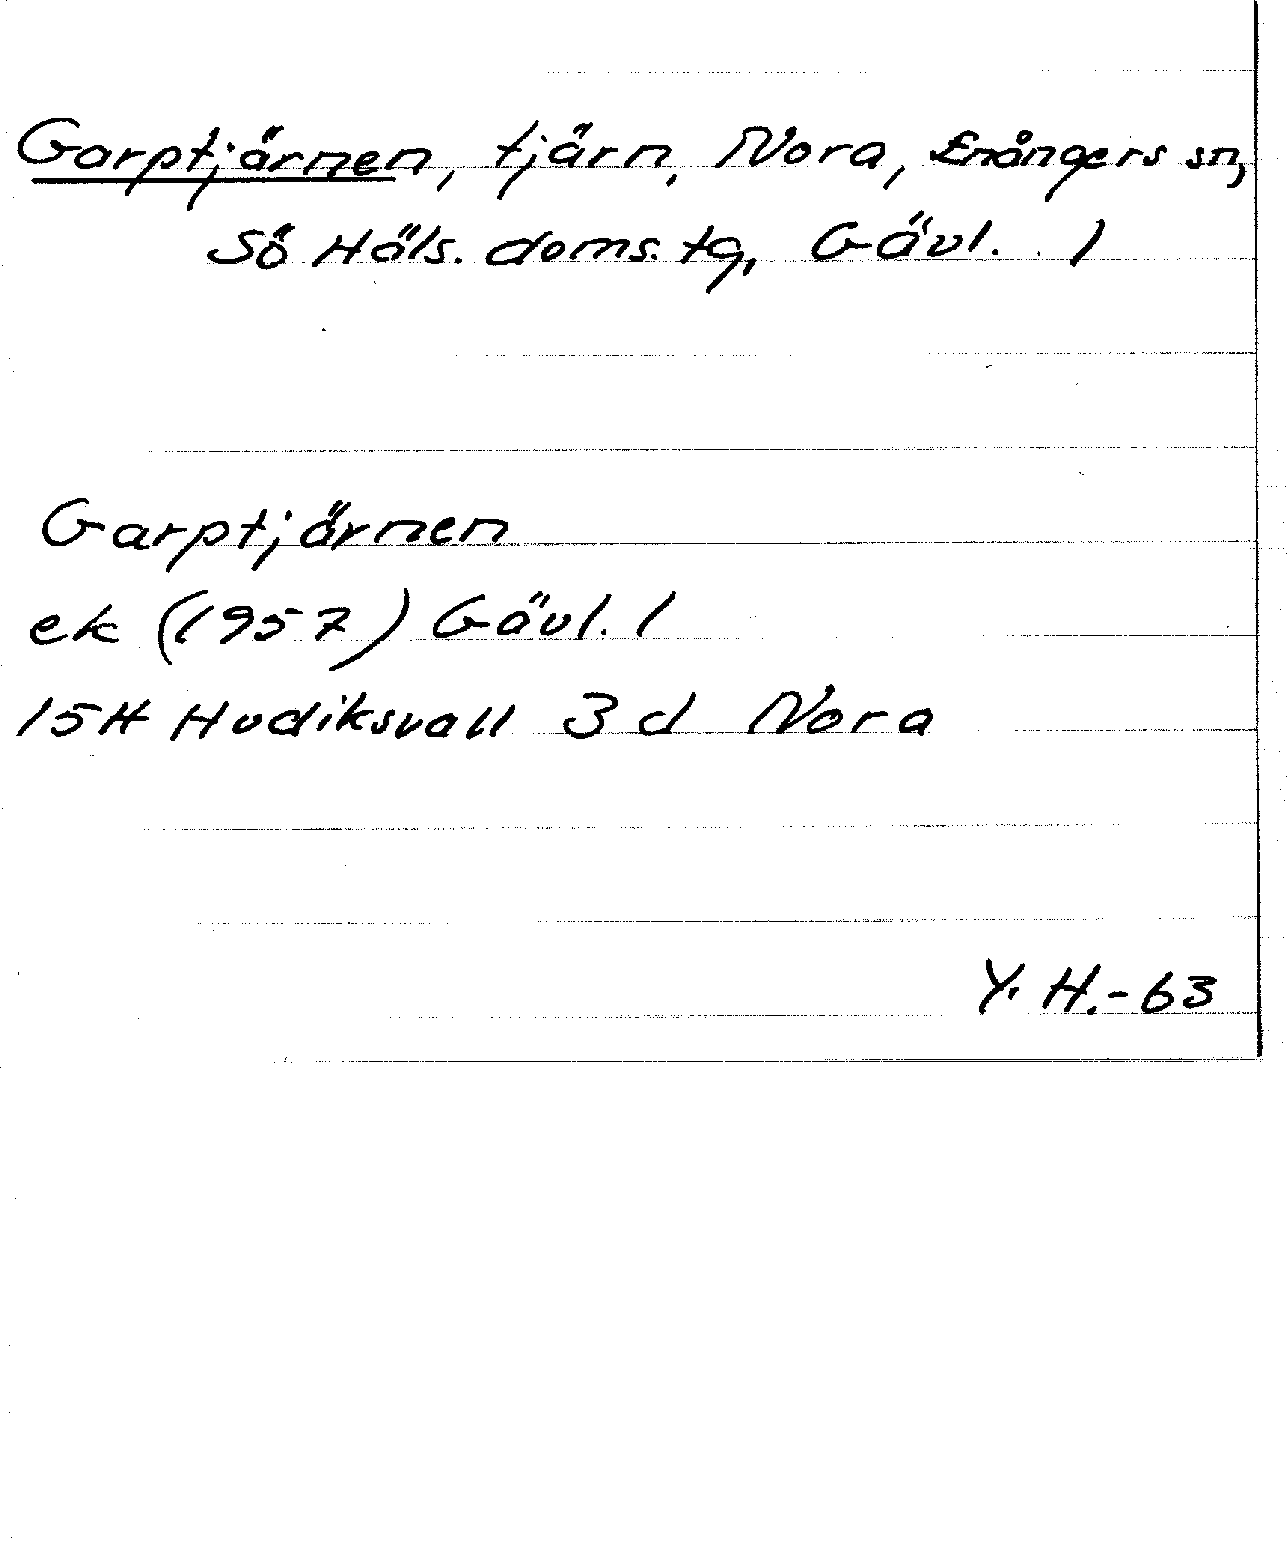 Garptjärnen, tjärn, Nora, Enångers sn,
Sö Häls. doms. tg, Gävl. l
Garptjärnen
ek (1957) Gävl. l
15H Hudiksvall 3d Nora
Y. H.-63